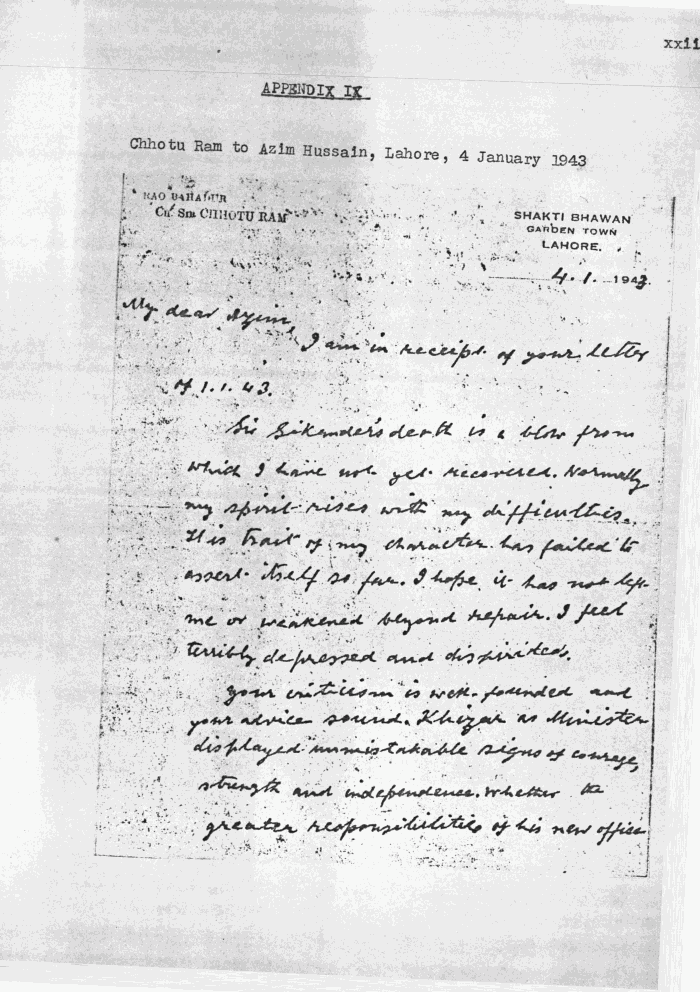 xxii
APPENDIX IX
Chhotu Ram to Azim Hussain, Lahore, 4 January 1943
RAO BAHADUR
CH. SIR CHHOTU RAM
SHAKTI BHAWAN
GARDEN TOWN
LAHORE.
4. 1. 1943.
My dear Azim,
I am in receipt of your letter
of 1.1.43.
Sir Sikander's death is a blow from
which I have not yet recovered. Normally
my spirit rises with my difficulties.
This trait of my character has failed to
assert itself so far. I hope it has not left
me or weakened beyond repair. I feel
terribly depressed and dispirited.
Your criticism is well-founded and
your advice sound. Khizar as Minister
displayed unmistakable signs of courage,
strength and independence. Whether the
greater responsibilities of his new office